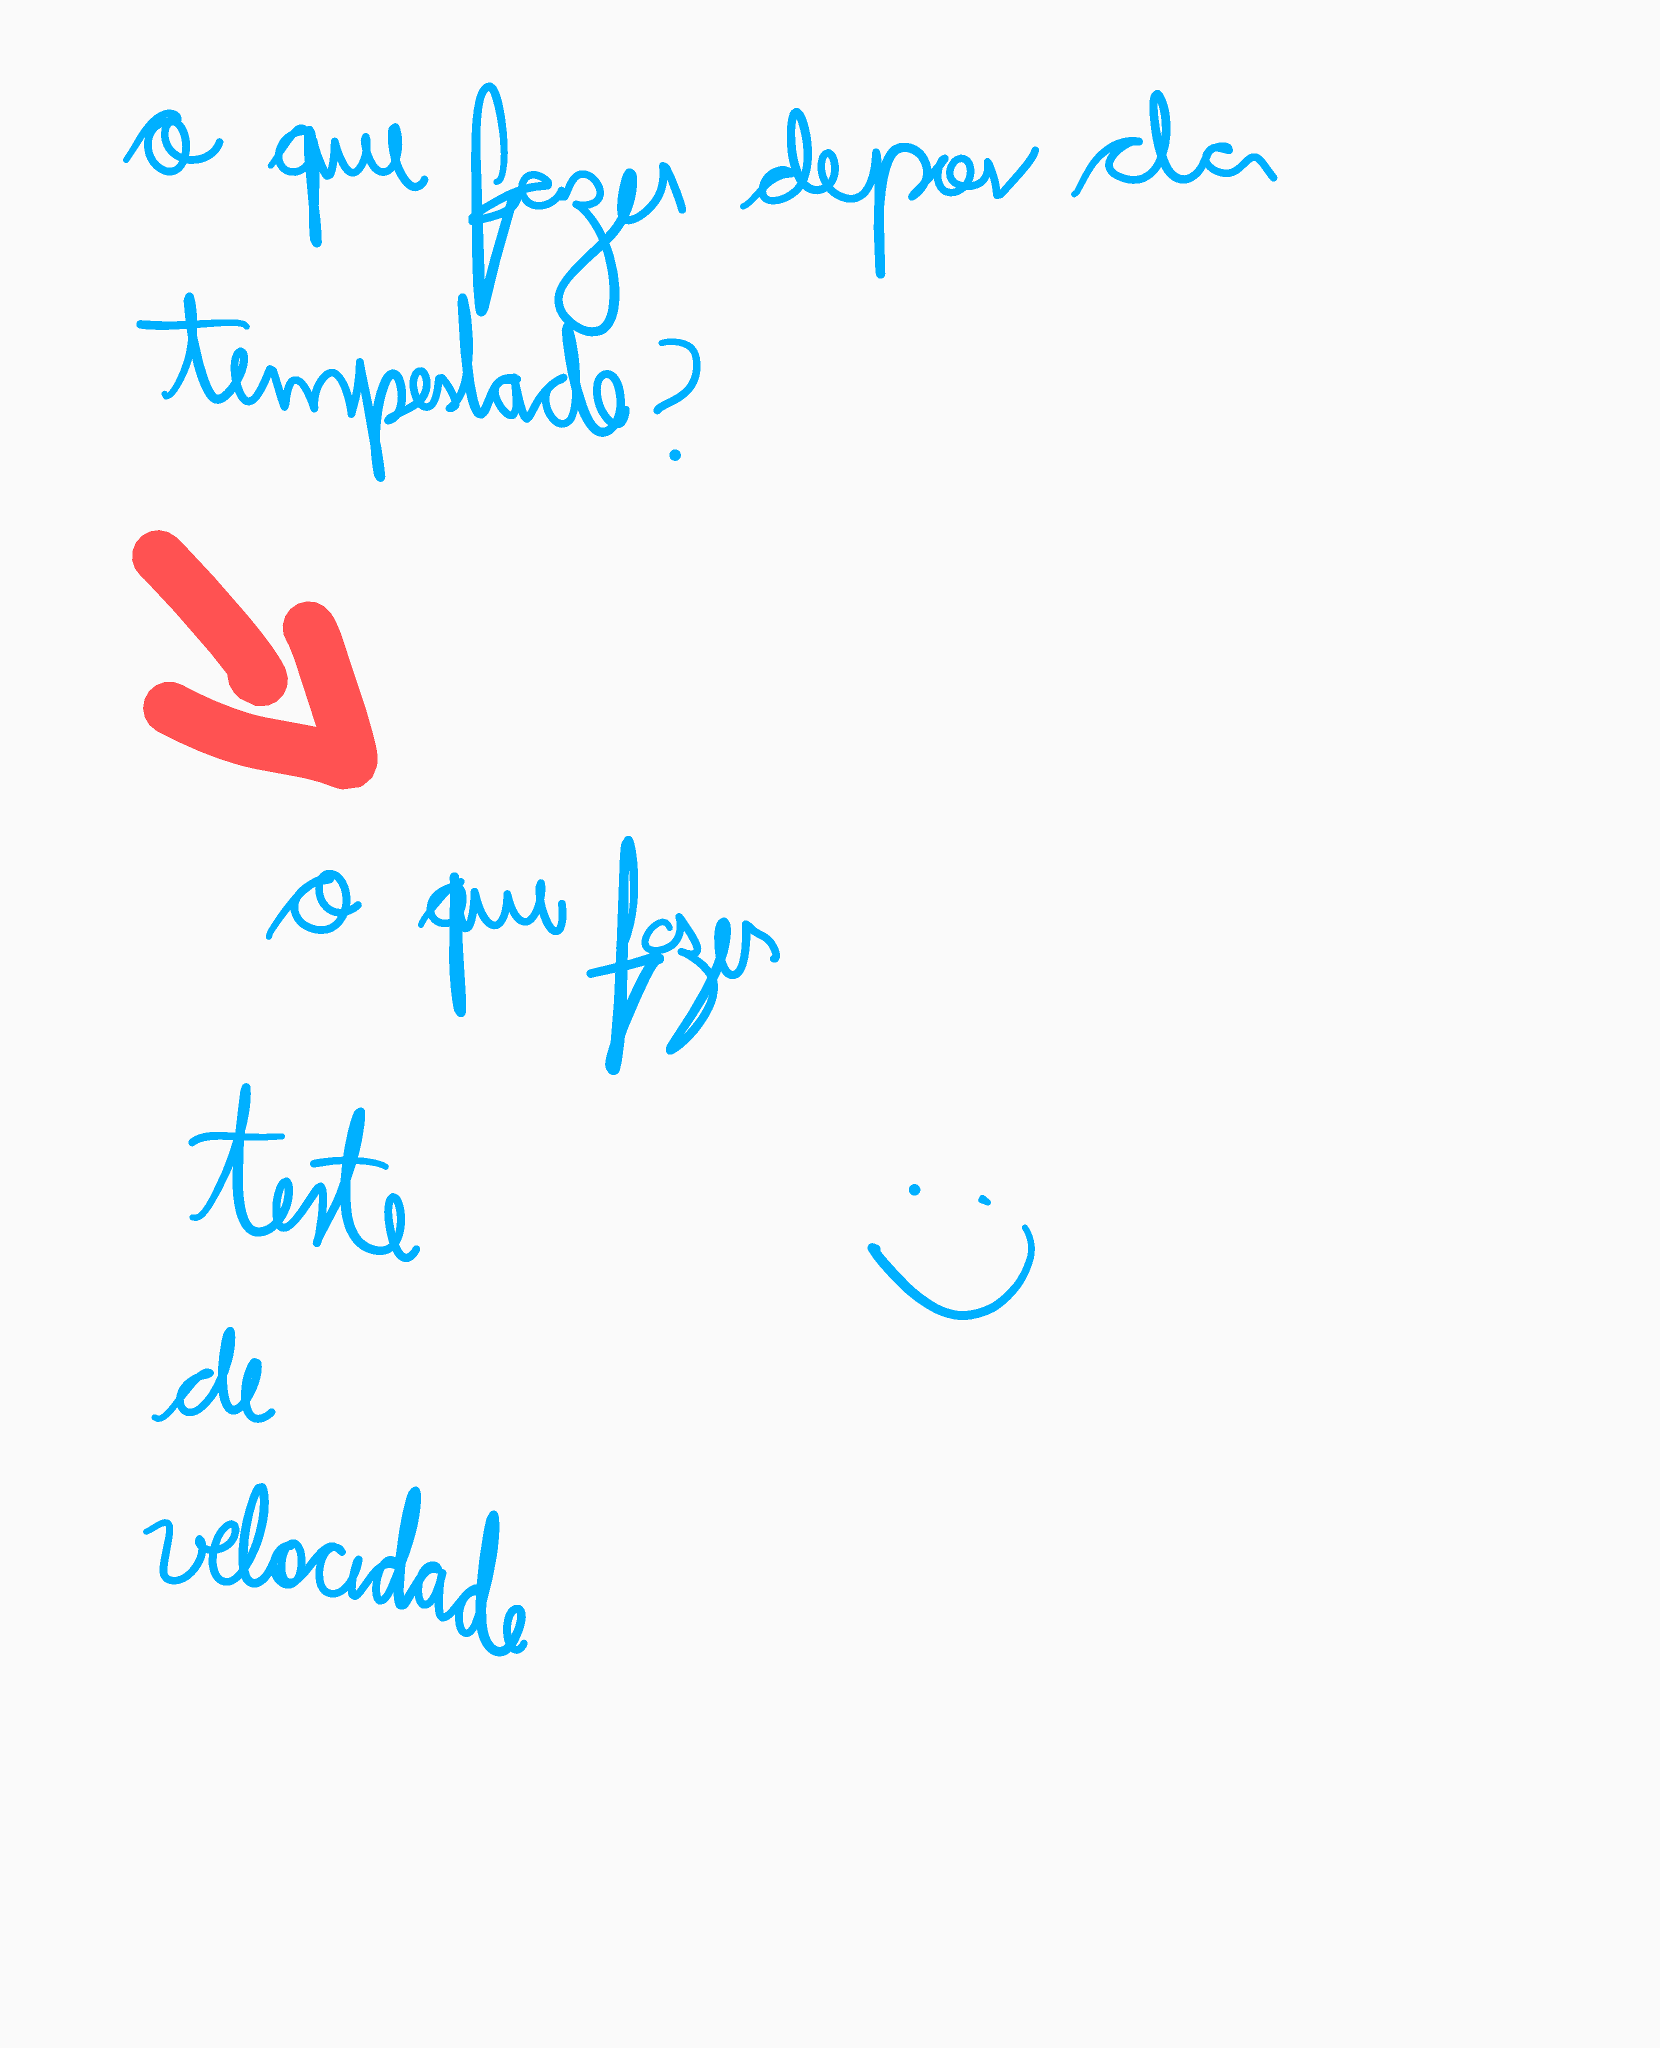 o que fazer depois da
tempestade?
o que fazer
teste
de
velocidade